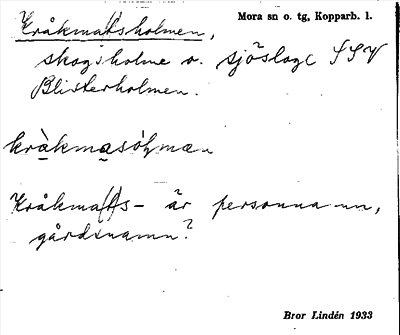 Kråkma(t)sholmen,
Mora sn o. tg, Kopparb. l.
skogsholme o. sjöslog SSV
Blisterholmen.
Kråkma(t)s- är personnamn,
gårdsnamn?
Bror Lindén 1933